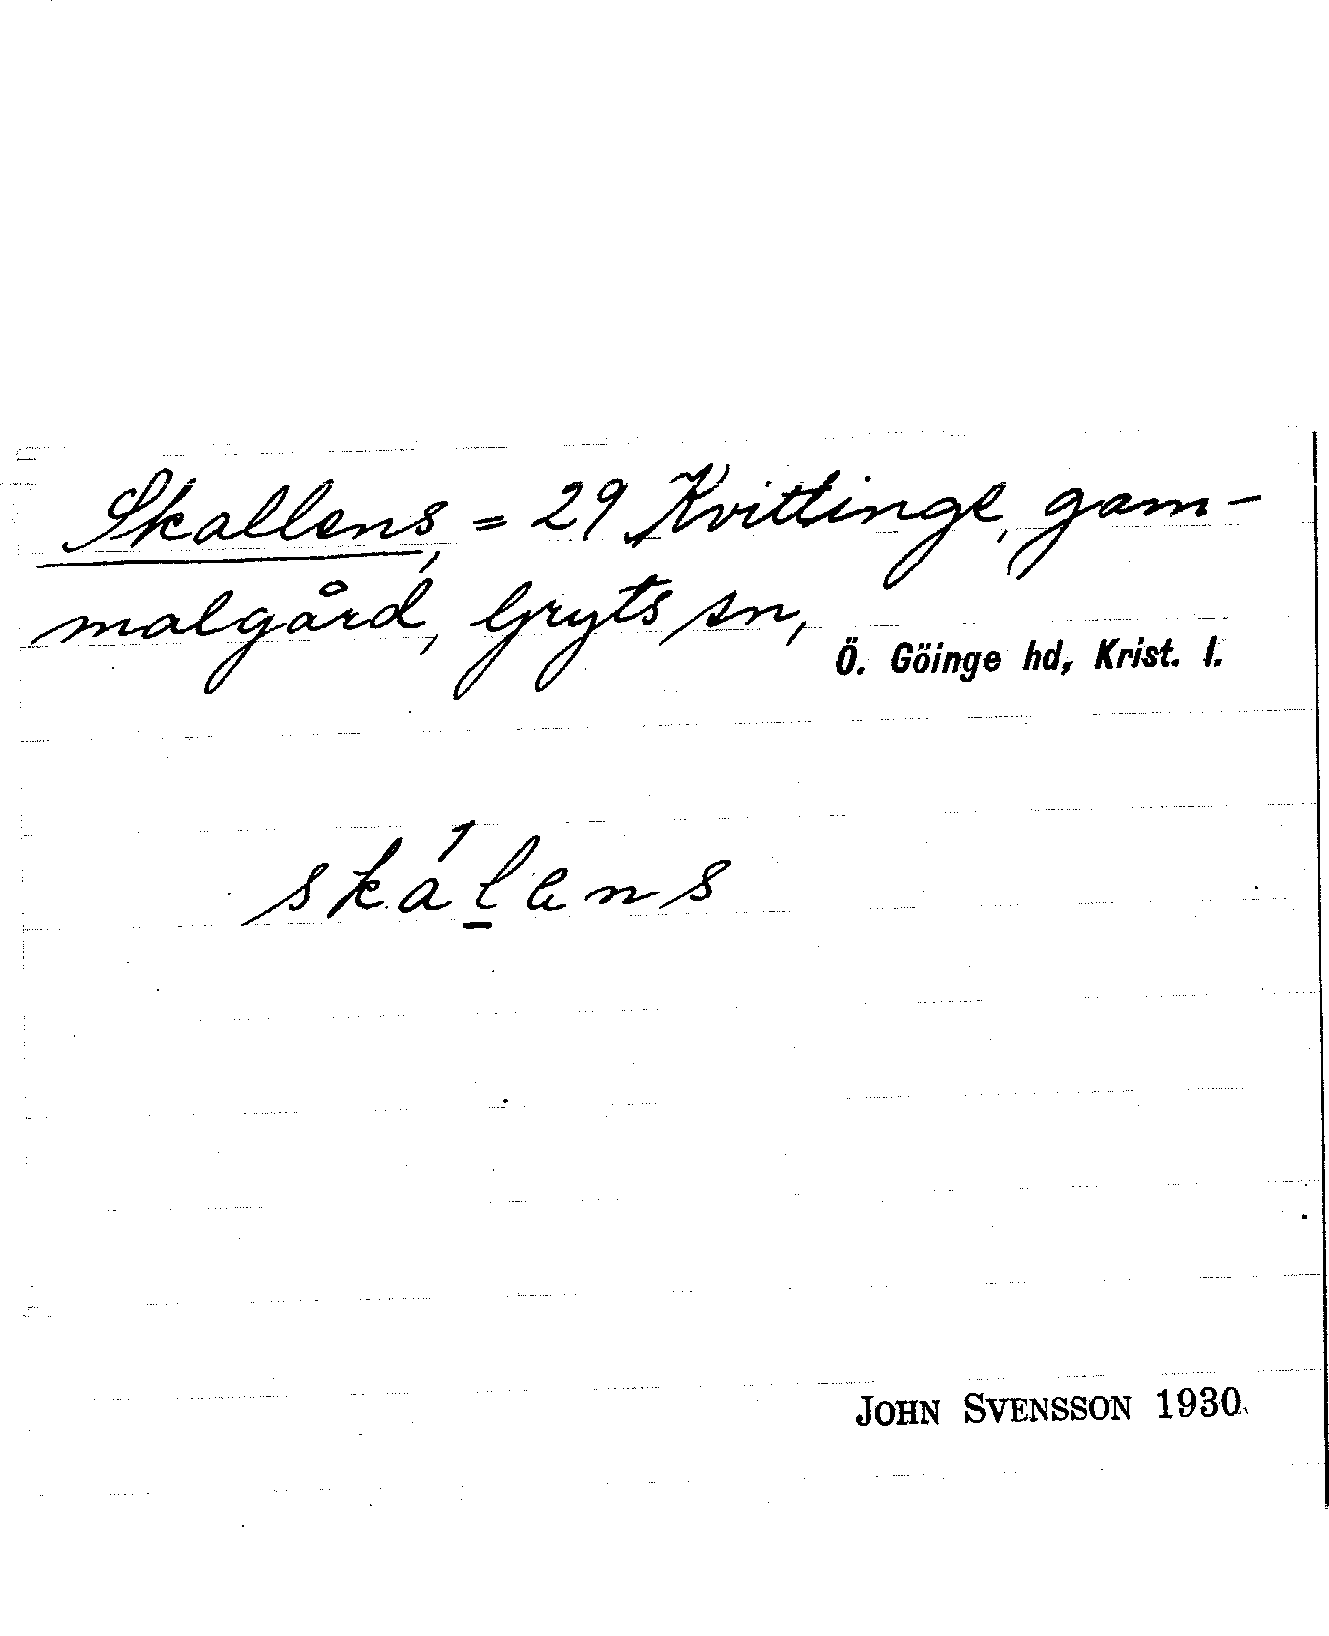 Skallens, = 29 Kvittinge, gam-
malgård, Gryts sn,
Ö. Göinge hd, Krist. l.
skálens
JOHN SVENSSON 1930